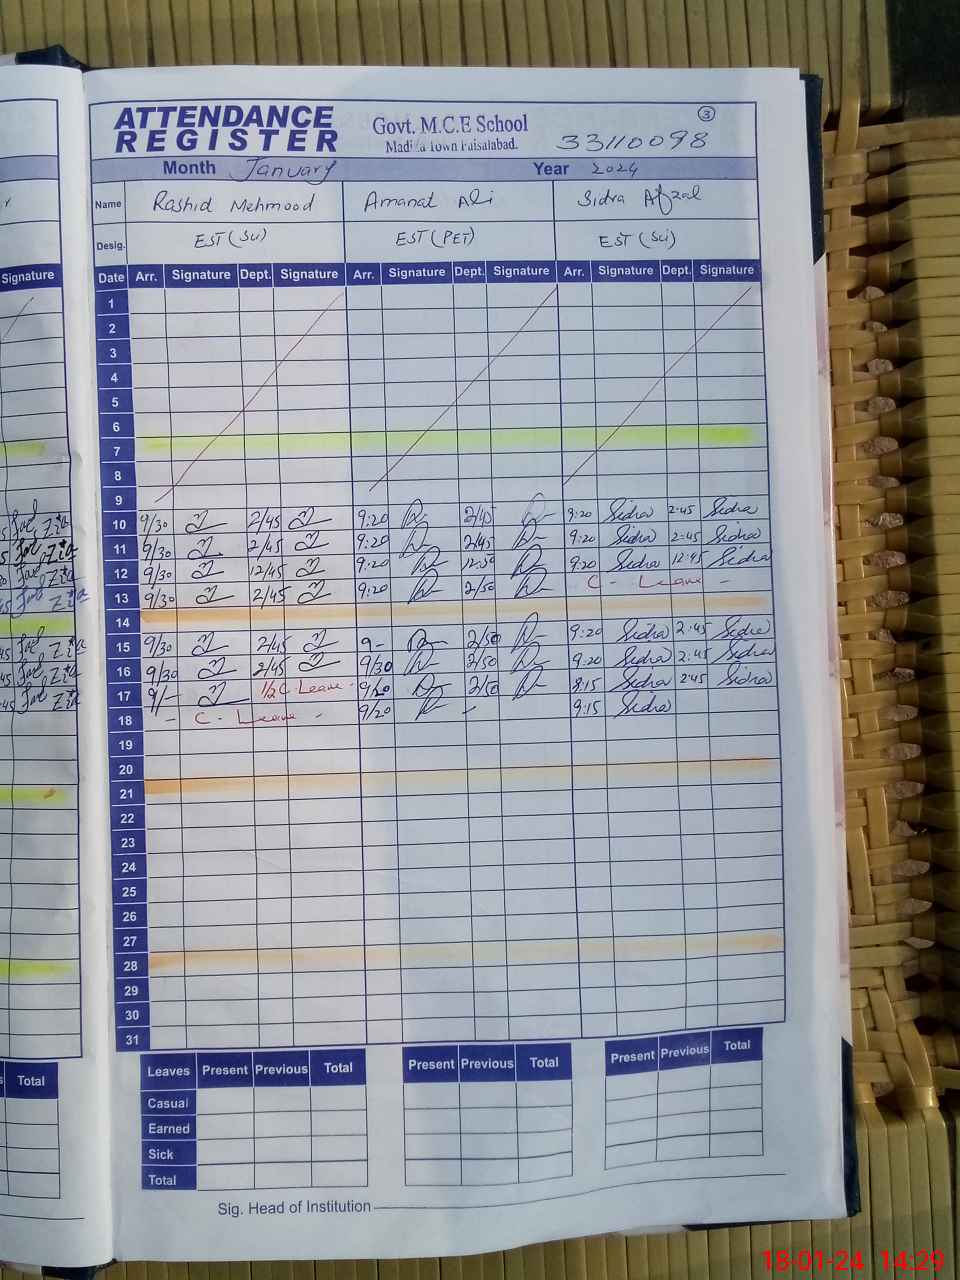 ATTENDANCE REGISTER
Govt. M.C.E School
Town Faisalabad.
3
33110098
Month January Year 2024
Name Rashid Mehmood Amanat Ali Sidra Afzal
Desig. EST (Sci) EST (PET) EST (Sci)
Signature Date Arr. Signature Dept. Signature Arr. Signature Dept. Signature Arr. Signature Dept. Signature
1
2
3
4
5
6
7
8
9
10 9/30 2/45 9:20 2/45 9:20 Sidra 2:45 Sidra
11 9/30 2/45 9:20 2/45 9:20 Sidra 2:45 Sidra
12 9/30 12/45 9:20 9:20 Sidra 12:45 Sidra
13 9/30 2/45 9:20 2/50 C - Leave -
14
15 9/30 2/45 9- 2/50 9:20 Sidra 2:45 Sidra
16 9/30 2/45 2/50 9:20 Sidra 2:45 Sidra
17 9/- 1/2 C. Leave - 2/50 8:15 Sidra 2:45 Sidra
18 - C. Leave - 9/20 - 9:15 Sidra
19
20
21
22
23
24
25
26
27
28
29
30
31
Total Leaves Present Previous Total Present Previous Total Present Previous Total
Casual
Earned
Sick
Total
Sig. Head of Institution
18-01-24 14:29